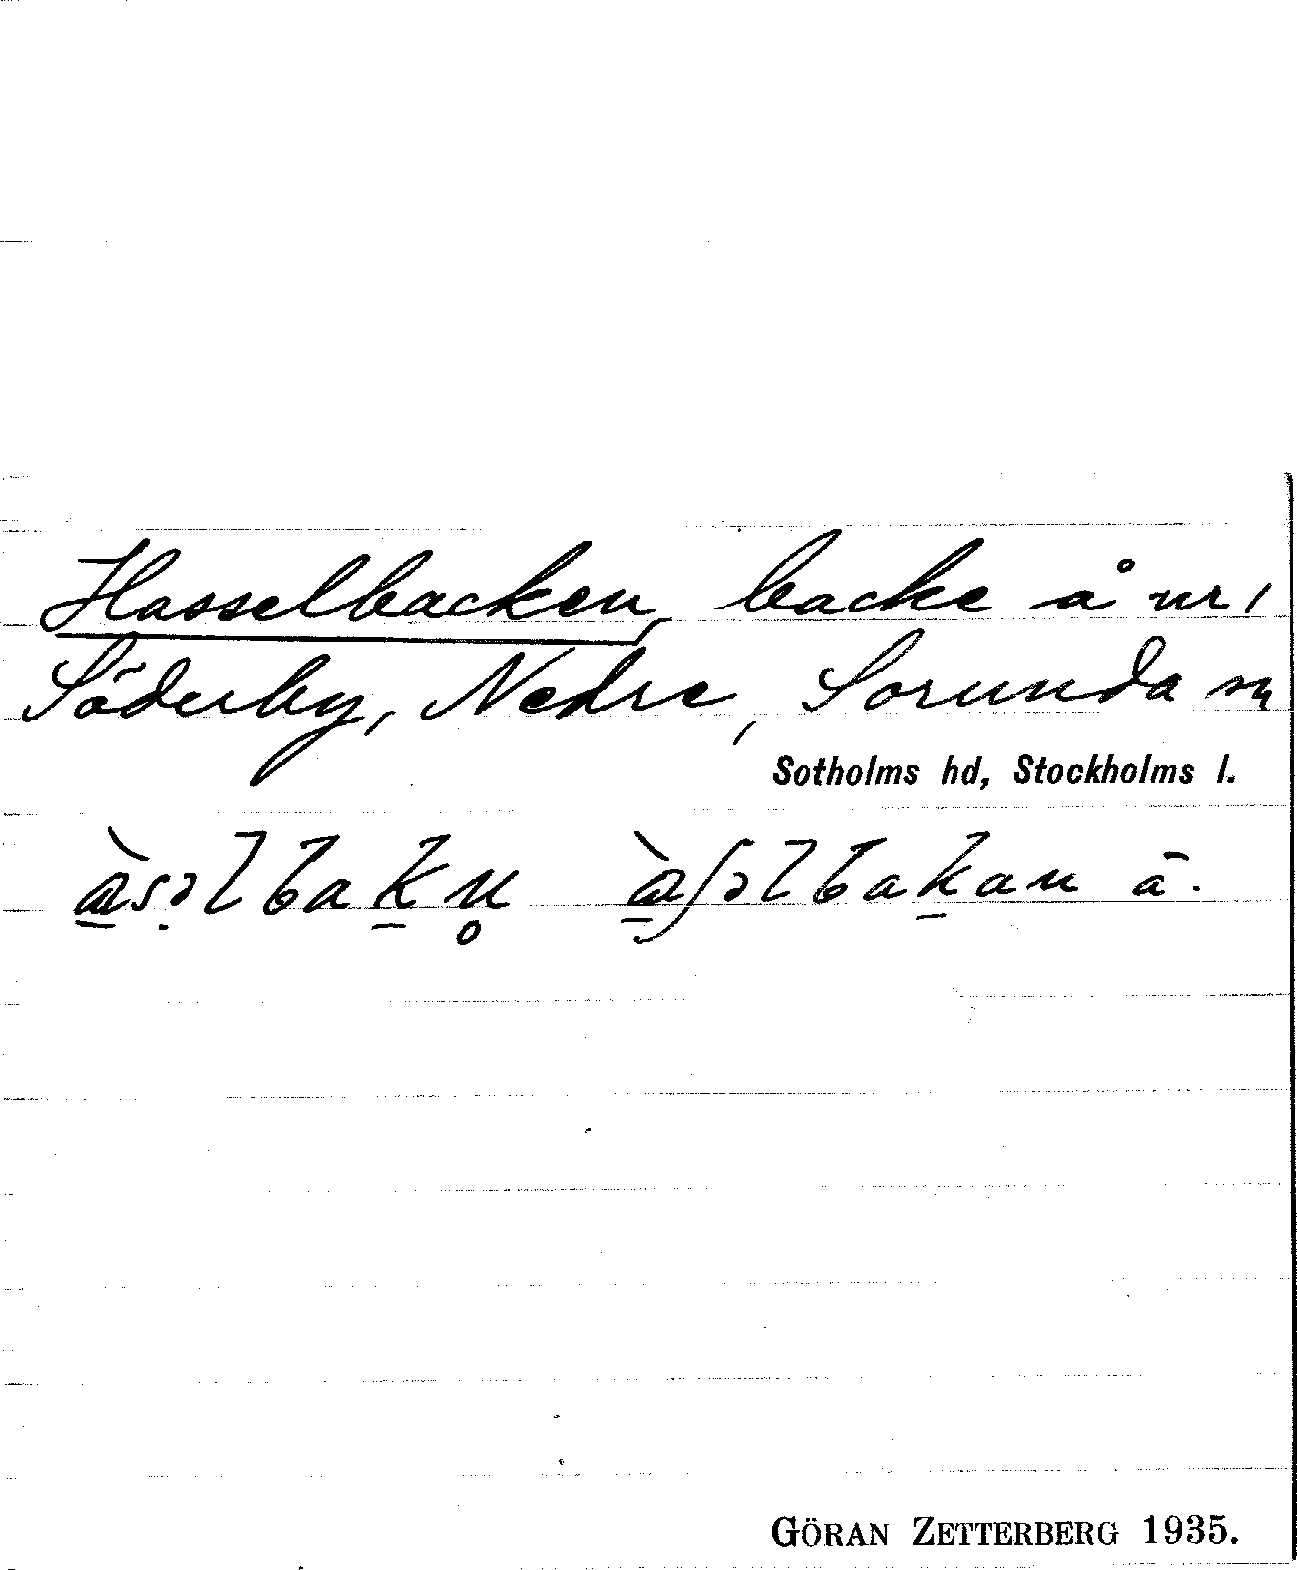 Hasselbacken, backe å nr 1
Söderby, Nedre, Sorunda sn
Sotholms hd, Stockholms l.
à̱səlbaḵn̥ à̱ſəlbaḵan ā.
GÖRAN ZETTERBERG 1935.